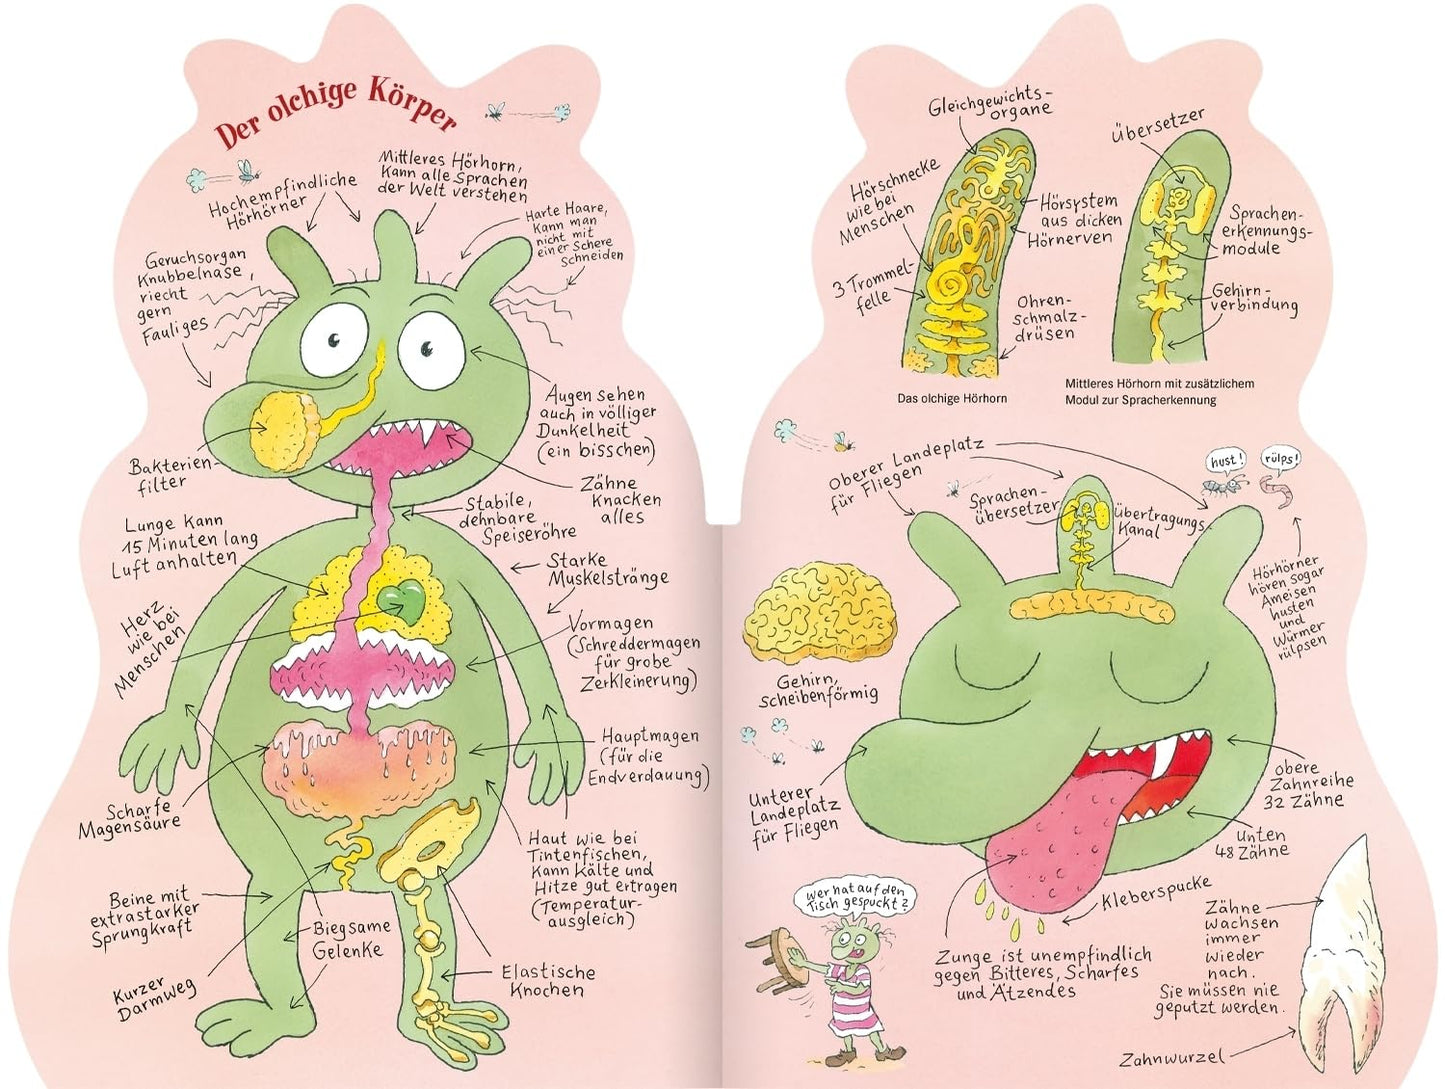 Der olchige Körper
Mittleres Hörhorn,
Kann alle Sprachen
der Welt verstehen
Hochempfindliche
Hörhörner
Harte Haare,
Kann man
nicht mit
einer Schere
Schneiden
Geruchsorgan
Knubbelnase,
riecht
gern
Fauliges
Augen sehen
auch in völliger
Dunkelheit
(ein bisschen)
Bakterien-
filter
Zähne
Knacken
alles
Stabile,
dehnbare
Speiseröhre
Lunge Kann
15 Minuten lang
Luft anhalten
Starke
Muskelstränge
Herz
wie bei
Menschen
Vormagen
(Schreddermagen
für grobe
Zerkleinerung)
Hauptmagen
(für die
Endverdauung)
Scharfe
Magensäure
Haut wie bei
Tintenfischen,
Kann Kälte und
Hitze gut ertragen
(Temperatur-
ausgleich)
Beine mit
extrastarker
Sprungkraft
Biegsame
Gelenke
Kurzer
Darmweg
Elastische
Knochen
Gleichgewichts-
organe
Hörschnecke
wie bei
Menschen
Hörsystem
aus dicken
Hörnerven
3 Trommel-
felle
Ohren-
schmalz-
drüsen
Das olchige Hörhorn
Übersetzer
Sprachen-
erkennungs-
module
Gehirn-
verbindung
Mittleres Hörhorn mit zusätzlichem
Modul zur Spracherkennung
Oberer Landeplatz
für Fliegen
hust!
rülps!
Sprachen-
übersetzer
Übertragungs-
Kanal
Hörhörner
hören sogar
Ameisen
husten
und
Würmer
rülpsen
Gehirn,
scheibenförmig
Unterer
Landeplatz
für Fliegen
obere
Zahnreihe
32 Zähne
Unten
48 Zähne
Kleberspucke
wer hat auf den
Tisch gespuckt?
Zunge ist unempfindlich
gegen Bitteres, Scharfes
und Ätzendes
Zähne
wachsen
immer
wieder
nach.
Sie müssen nie
geputzt werden.
Zahnwurzel